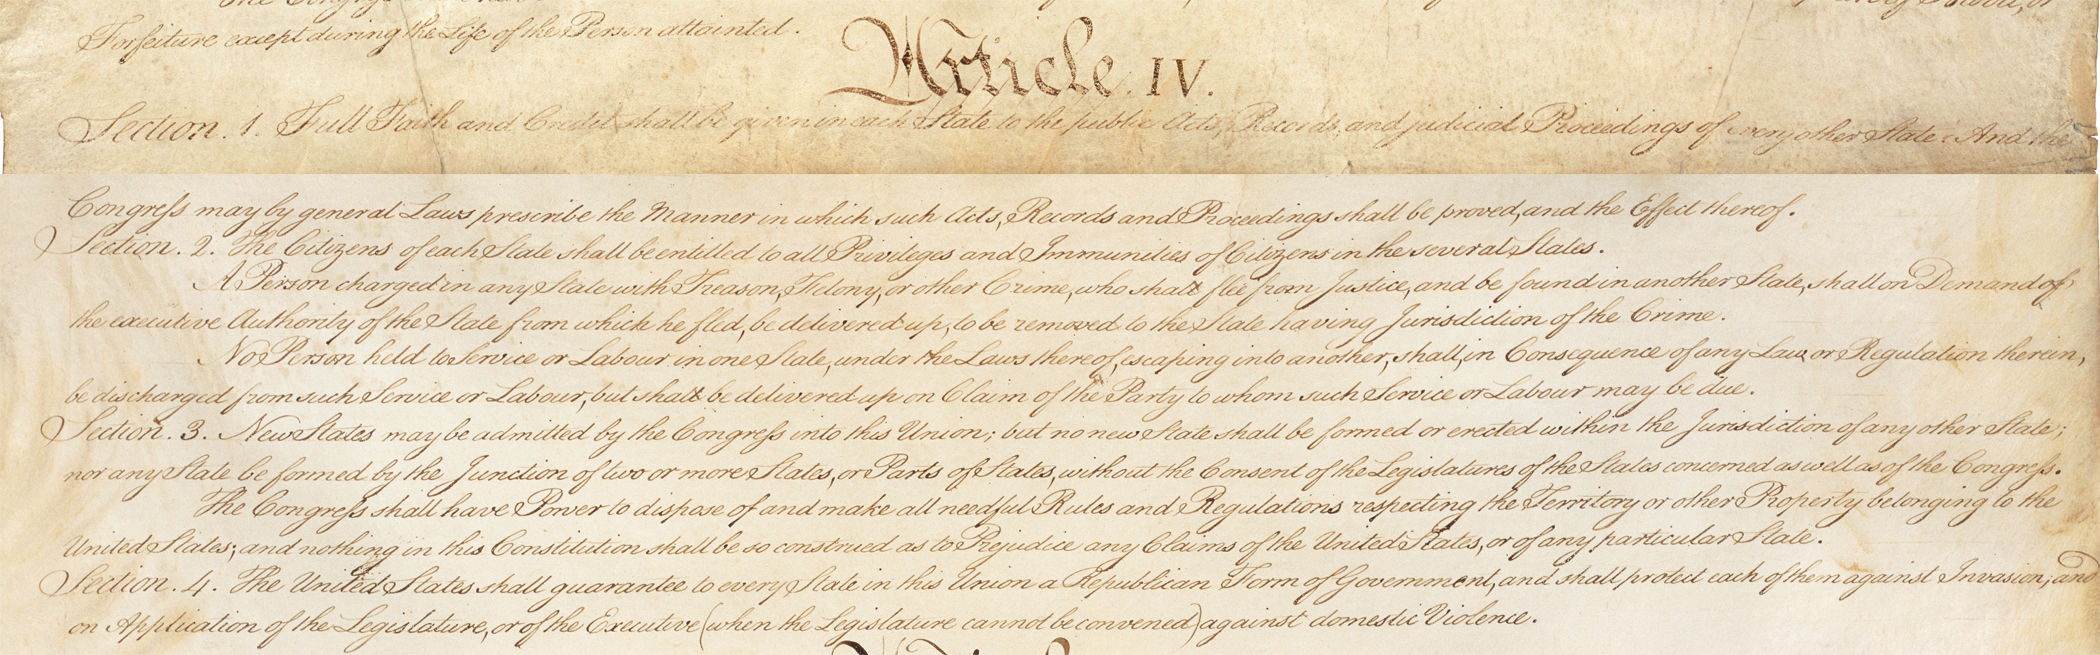 Forfeiture except during the Life of the Person attainted.
Article. IV.
Section. 1. Full Faith and Credit shall be given in each State to the public Acts, Records, and judicial Proceedings of every other State. And the
Congress may by general Laws prescribe the Manner in which such Acts, Records and Proceedings shall be proved, and the Effect thereof.
Section. 2. The Citizens of each State shall be entitled to all Privileges and Immunities of Citizens in the several States.
A Person charged in any State with Treason, Felony, or other Crime, who shall flee from Justice, and be found in another State, shall on Demand of
the executive Authority of the State from which he fled, be delivered up, to be removed to the State having Jurisdiction of the Crime.
No Person held to Service or Labour in one State, under the Laws thereof, escaping into another, shall, in Consequence of any Law or Regulation therein,
be discharged from such Service or Labour, but shall be delivered up on Claim of the Party to whom such Service or Labour may be due.
Section. 3. New States may be admitted by the Congress into this Union; but no new State shall be formed or erected within the Jurisdiction of any other State;
nor any State be formed by the Junction of two or more States, or Parts of States, without the Consent of the Legislatures of the States concerned as well as of the Congress.
The Congress shall have Power to dispose of and make all needful Rules and Regulations respecting the Territory or other Property belonging to the
United States; and nothing in this Constitution shall be so construed as to Prejudice any Claims of the United States, or of any particular State.
Section. 4. The United States shall guarantee to every State in this Union a Republican Form of Government, and shall protect each of them against Invasion; and
on Application of the Legislature, or of the Executive (when the Legislature cannot be convened) against domestic Violence.